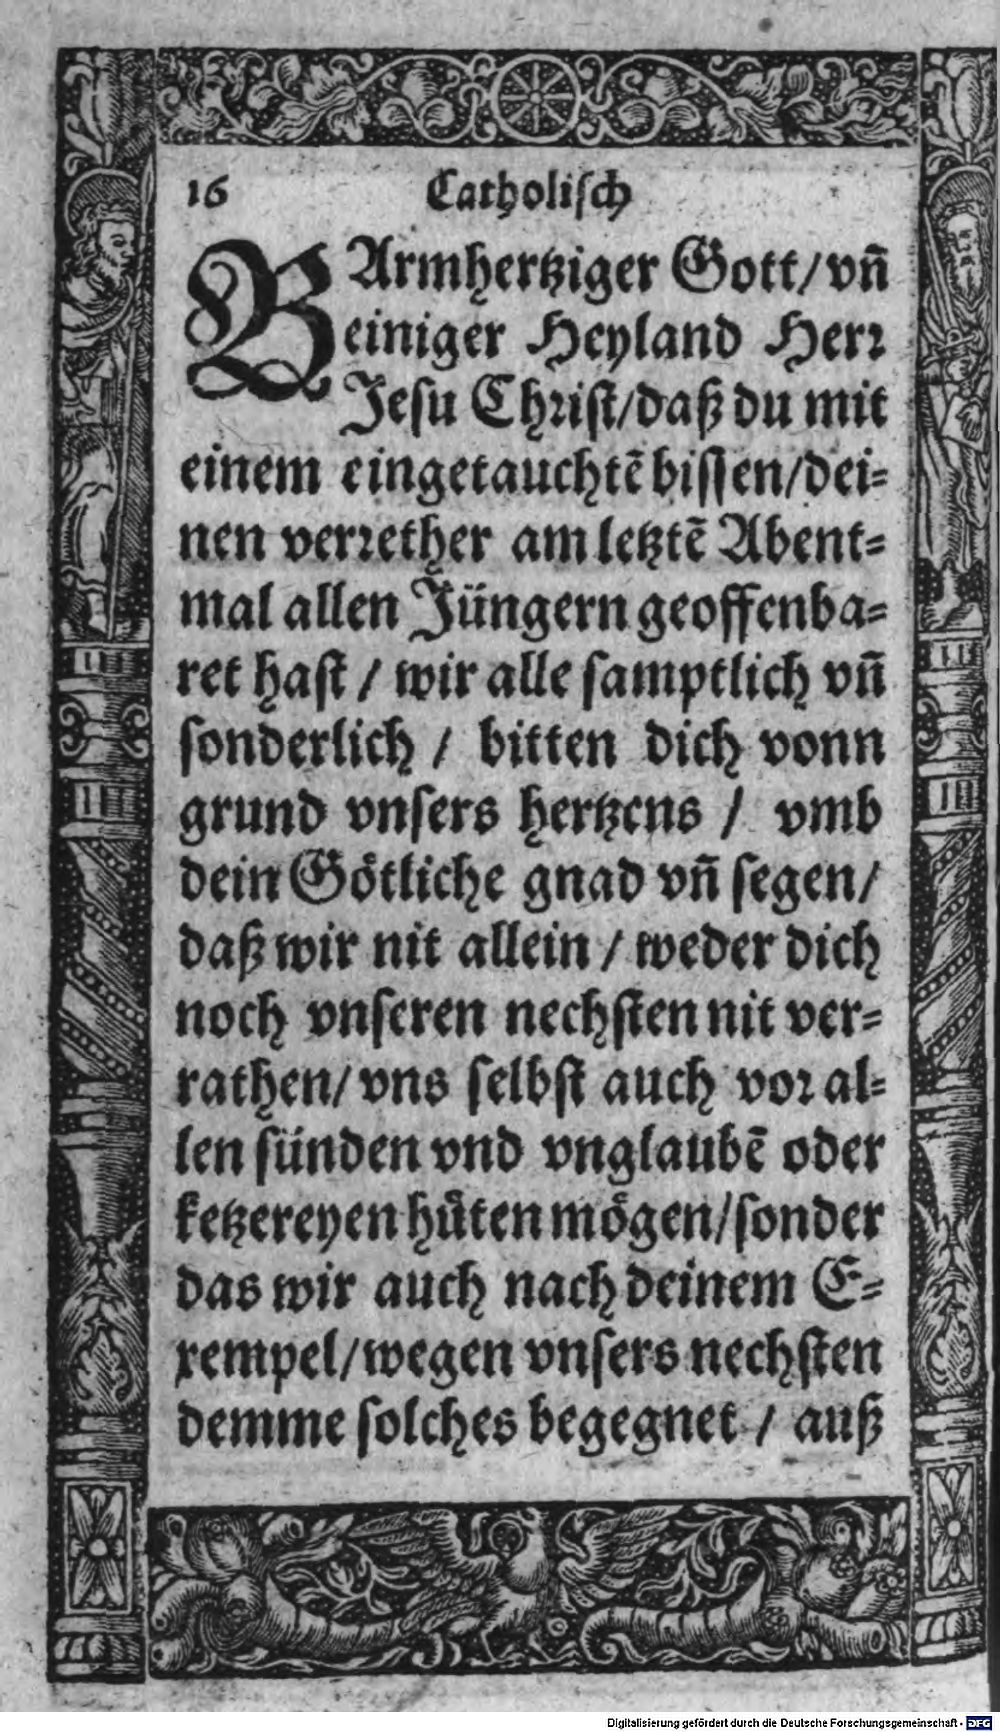 16 Catholisch
BArmhertziger Gott/ vñ
einiger Heyland Herꝛ
Jesu Chꝛist/ daß du mit
einem eingetauchtẽ bissen/ dei⸗
nen verꝛether am letztẽ Abent⸗
mal allen Jüngern geoffenba⸗
ret hast / wir alle samptlich vñ
sonderlich / bitten dich vonn
grund vnsers hertzens / vmb
dein Göttliche gnad vñ segen/
daß wir nit allein / weder dich
noch vnseren nechsten nit ver⸗
rathen/ vns selbst auch voꝛ al⸗
len sünden vnd vnglaubẽ oder
ketzereyen huͤten moͤgen/ sonder
das wir auch nach deinem E⸗
xempel/ wegen vnsers nechsten
demme solches begegnet / auß
Digitalisierung gefördert durch die Deutsche Forschungsgemeinschaft - DFG